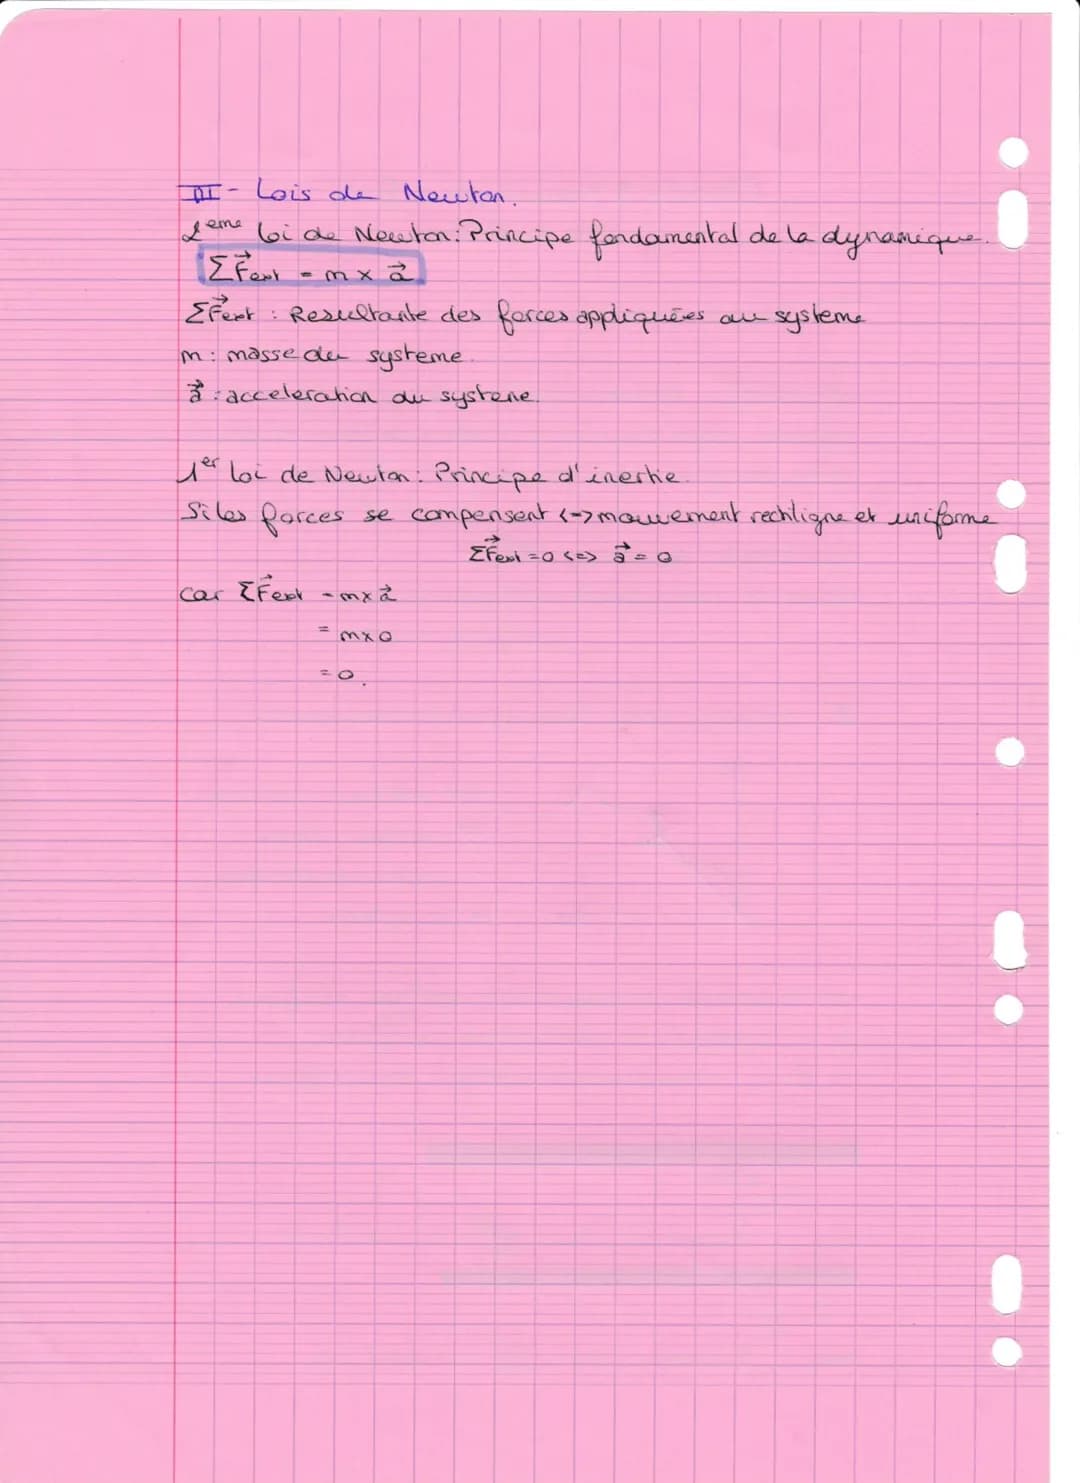 III - Lois de Newton.
2eme loi de Newton: Principe fondamental de la dynamique.
ΣF⃗ext = m × a⃗
ΣF⃗ext : Resultante des forces appliquées au systeme
m : masse du systeme.
a⃗ : acceleration du systeme.
1er loi de Newton: Principe d'inertie.
Si les forces se compensent <-> mouvement rectiligne et uniforme
ΣF⃗ext = 0 <=> a⃗ = 0
car ΣF⃗ext = m × a⃗
= m × 0
= 0.